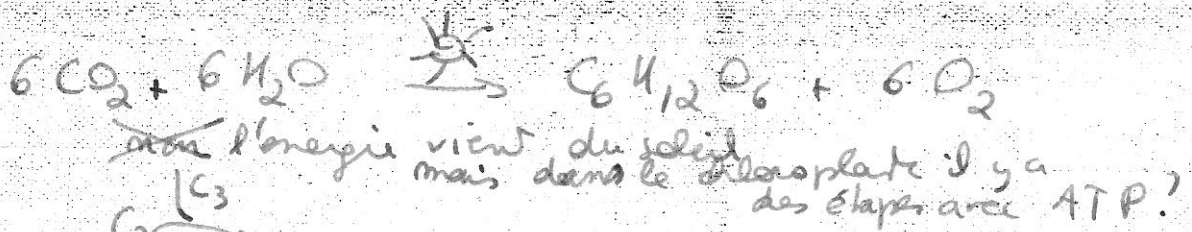 6 CO₂ + 6 H₂O → C₆H₁₂O₆ + 6 O₂
non l'énergie vient du soleil
mais dans le chloroplaste il y a
des étapes avec ATP !
C₃